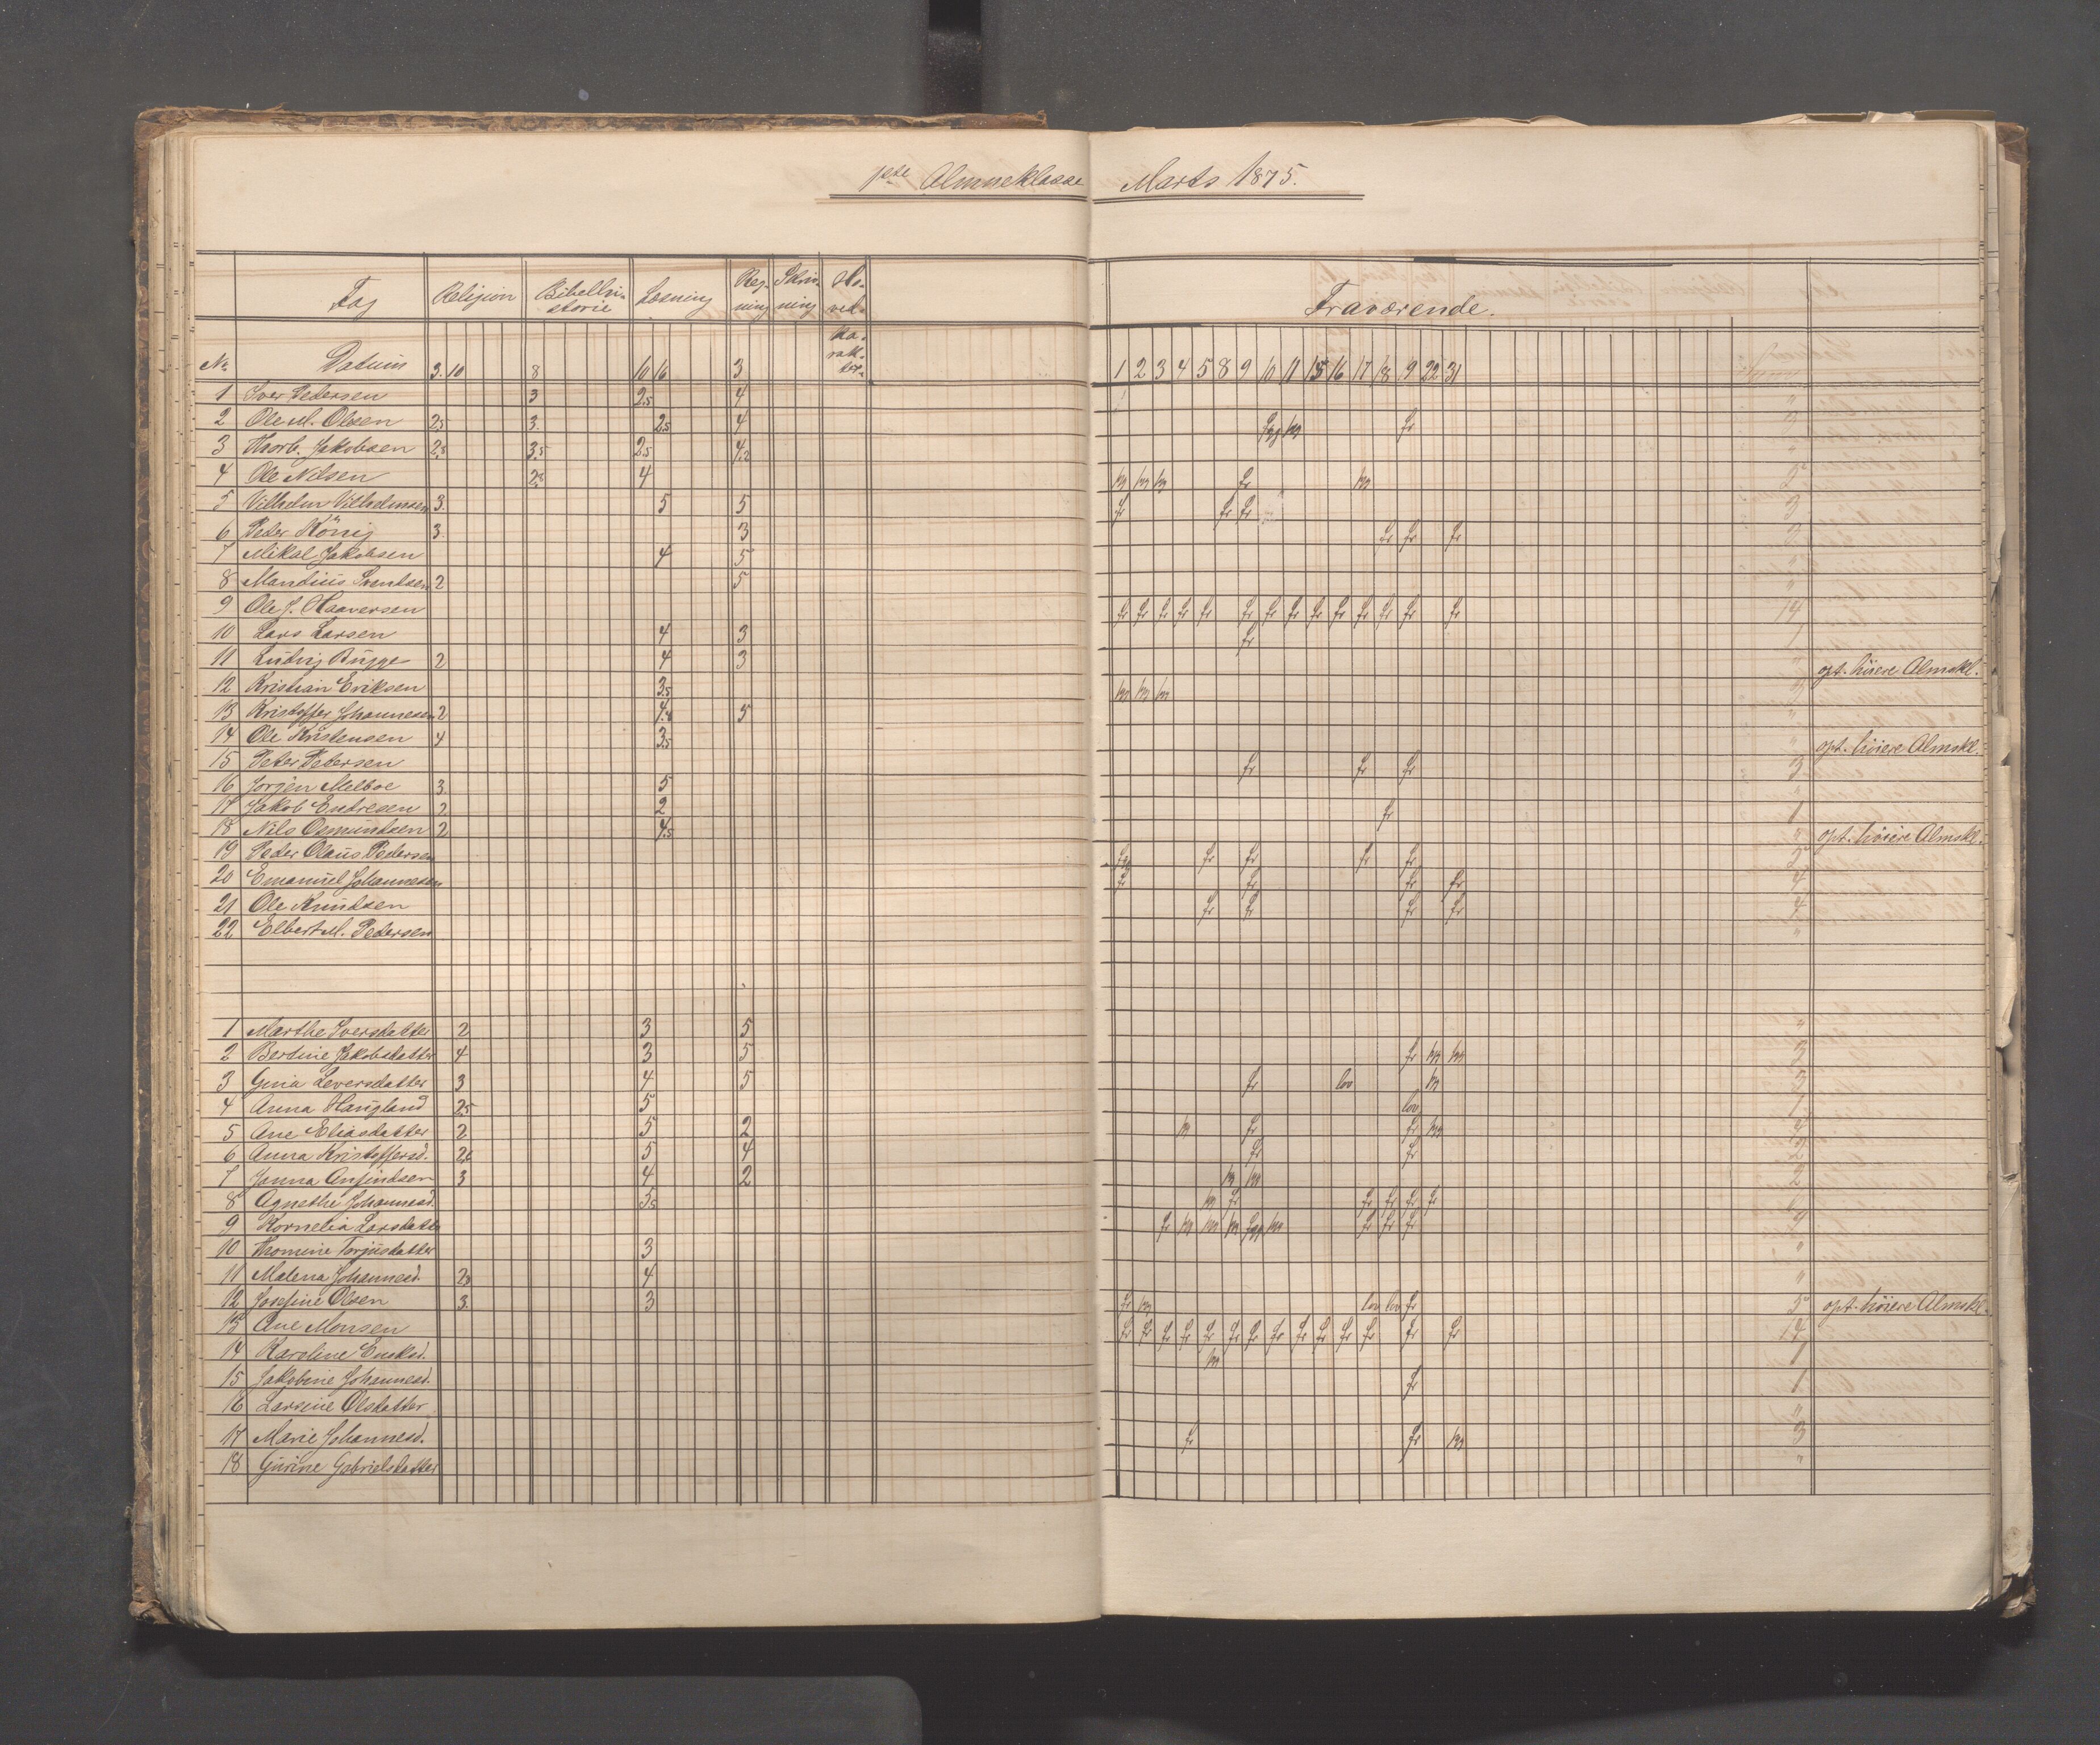 1ste Almueklasse Marts 1875.
Fag Religion Bibelhi- Læsning Reg- Skriv- Ho-
storie ning ning ved-
Fraværende.
ka-
rak-
ter-
No Datum 3. 10 8 10 16 3 1 2 3 4 5 8 9 10 11 15 16 17 18 9 22 31
1 Iver Pedersen 3 2.5 4 "
2 Ole M. Olsen 2.5 3. 2.5 4 Syg m fr 3
3 Thorb. Jakobsen 2.8 3.5 2.5 4.2 "
4 Ole Nilsen 2.8 4 m m m fr m 5
5 Vilhelm Vilhelmsen 3. 5 5 fr fr fr 3
6 Peder König 3. 3 fr fr fr 3
7 Mikal Jakobsen 4 5 "
8 Mandius Svendsen 2 5 "
9 Ole J. Haaversen fr fr fr fr fr fr fr fr fr fr fr fr fr fr 14
10 Lars Larsen 4 3 fr 1
11 Ludvig Bugge 2 4 3 " opt. höiere Almskl.
12 Kristian Eriksen 3.5 m m m 3
13 Kristoffer Johannesen 2 4.8 5 "
14 Ole Kristensen 4 3.5 " opt. höiere Almskl.
15 Peter Petersen fr fr fr 3
16 Jörgen Melboe 3. 5 "
17 Jakob Endresen 2 2 fr 1
18 Nils Osmundsen 2 4.5 " opt. höiere Almskl.
19 Peder Olaus Pedersen Syg fr fr fr fr 5
20 Emanuel Johannesen fr fr fr fr 4
21 Ole Knudsen fr fr fr fr 4
22 Elbert M. Pedersen "
1 Marthe Iversdatter 2 3 5 "
2 Berdine Jakobsdatter 4 3 5 fr m m 3
3 Gina Seversdatter 3 4 5 fr lov m 3
4 Anna Haugland 2.5 5 lov 1
5 Ane Eliasdatter 2 5 2 m fr fr m 4
6 Anna Kristoffersd. 2.6 5 4 fr fr 2
7 Janna Anfindsen 3 4 2 m m 2
8 Agnethe Johannesd. 3.5 m fr fr fr fr fr 6
9 Kornelia Larsdatter fr m m m Syg m fr fr fr 9
10 Thomine Torjusdatter 3 "
11 Malena Johannesd. 2.8 4 "
12 Josefine Olsen 3. 3 fr m lov lov fr 5 opt. höiere Almskl.
13 Ane Monsen fr fr fr fr fr fr fr fr fr fr fr fr fr fr 14
14 Karoline Eriksd. m 1
15 Jakobine Johannesd. fr 1
16 Larsine Olsdatter "
17 Marie Johannesd. fr fr m 3
18 Gurine Gabrielsdatter "